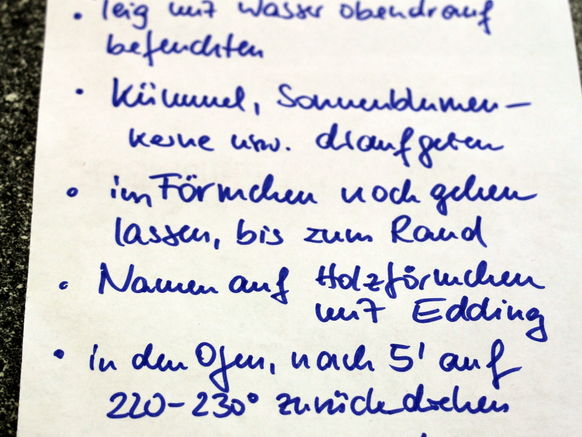 • Teig mit Wasser obendrauf
befeuchten
• Kümmel, Sonnenblumen-
kerne usw. draufgeben
• im Förmchen noch gehen
lassen, bis zum Rand
• Namen auf Holzförmchen
mit Edding
• in den Ofen, nach 5' auf
220-230° zurückdrehen